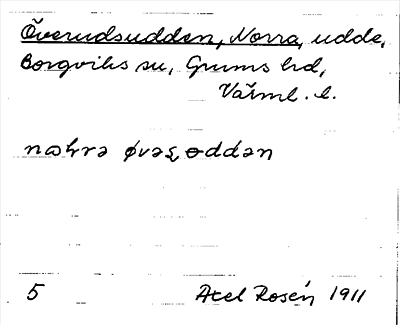 Överudsudden, Norra, udde,
Borgviks sn, Grums hd,
Värml. l.
nɷhrə øvəʂ ɵddən
5 Axel Rosén 1911